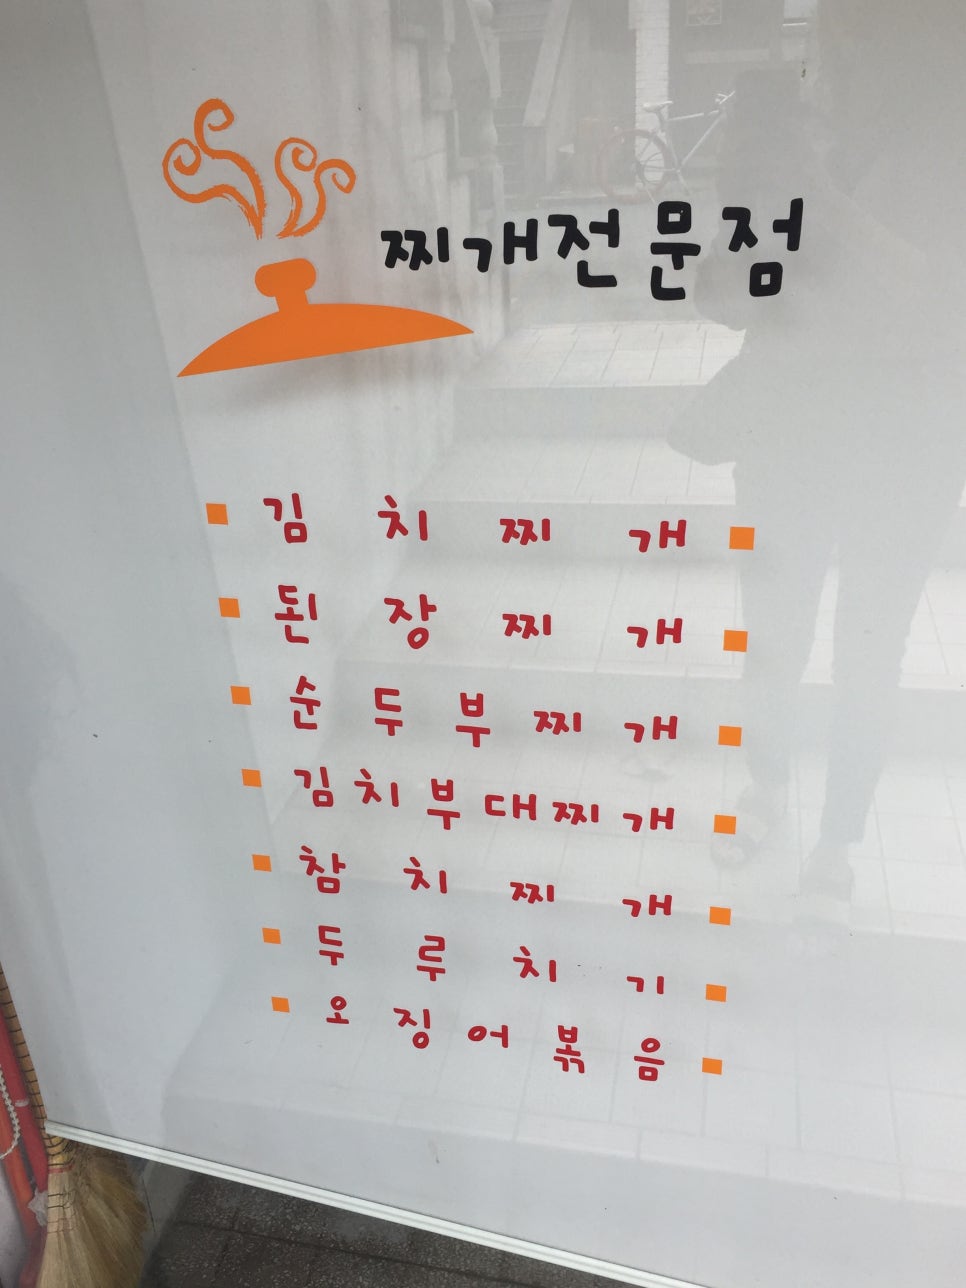 찌개전문점
김치찌개
된장찌개
순두부찌개
김치부대찌개
참치찌개
두루치기
오징어볶음